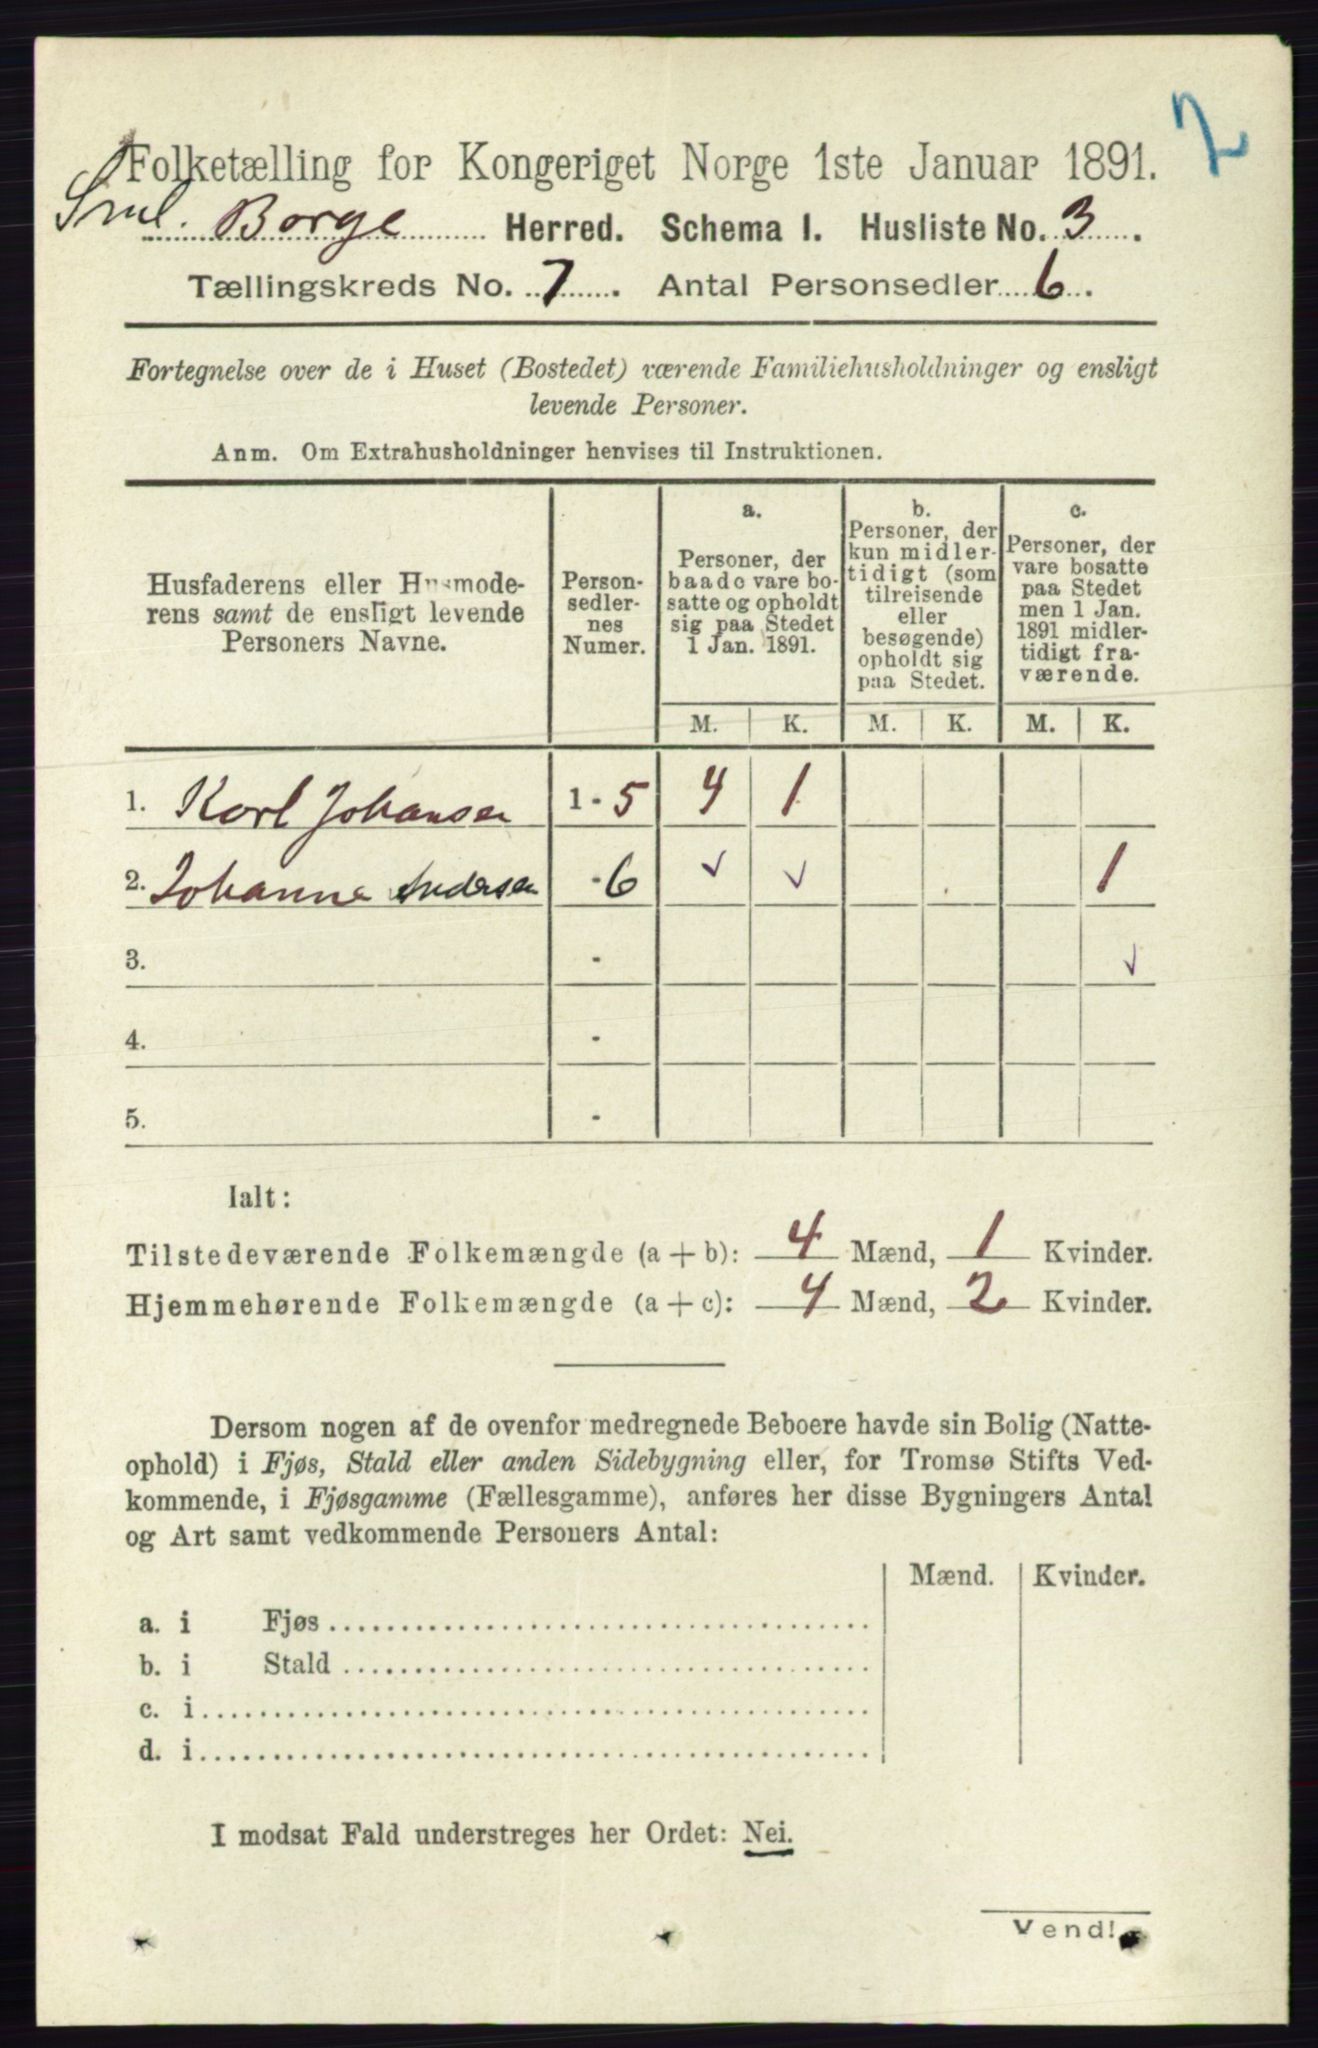 2
Folketælling for Kongeriget Norge 1ste Januar 1891.
Sml. Borge Herred. Schema I. Husliste No. 3.
Tællingskreds No. 7. Antal Personsedler 6.
Fortegnelse over de i Huset (Bostedet) værende Familiehusholdninger og ensligt
levende Personer.
Anm. Om Extrahusholdninger henvises til Instruktionen.
Husfaderens eller Husmode-
rens samt de ensligt levende
Personers Navne.
Person-
sedler-
nes
Numer.
a.
Personer, der
baade vare bo-
satte og opholdt
sig paa Stedet
1 Jan. 1891.
b.
Personer, der
kun midler-
tidigt (som
tilreisende
eller
besøgende)
opholdt sig
paa Stedet.
c.
Personer, der
vare bosatte
paa Stedet
men 1 Jan.
1891 midler-
tidigt fra-
værende.
M. K. M. K. M. K.
1. Karl Johansen 1 - 5 4 1
2. Johanne Andersen - 6 ✓ ✓ 1
3. - ✓
4. -
5. -
Ialt:
Tilstedeværende Folkemængde (a + b): 4 Mænd, 1 Kvinder.
Hjemmehørende Folkemængde (a + c): 4 Mænd, 2 Kvinder.
Dersom nogen af de ovenfor medregnede Beboere havde sin Bolig (Natte-
ophold) i Fjøs, Stald eller anden Sidebygning eller, for Tromsø Stifts Ved-
kommende, i Fjøsgamme (Fællesgamme), anføres her disse Bygningers Antal
og Art samt vedkommende Personers Antal:
Mænd. Kvinder.
a. i Fjøs
b. i Stald
c. i
d. i
I modsat Fald understreges her Ordet: Nei.
Vend!